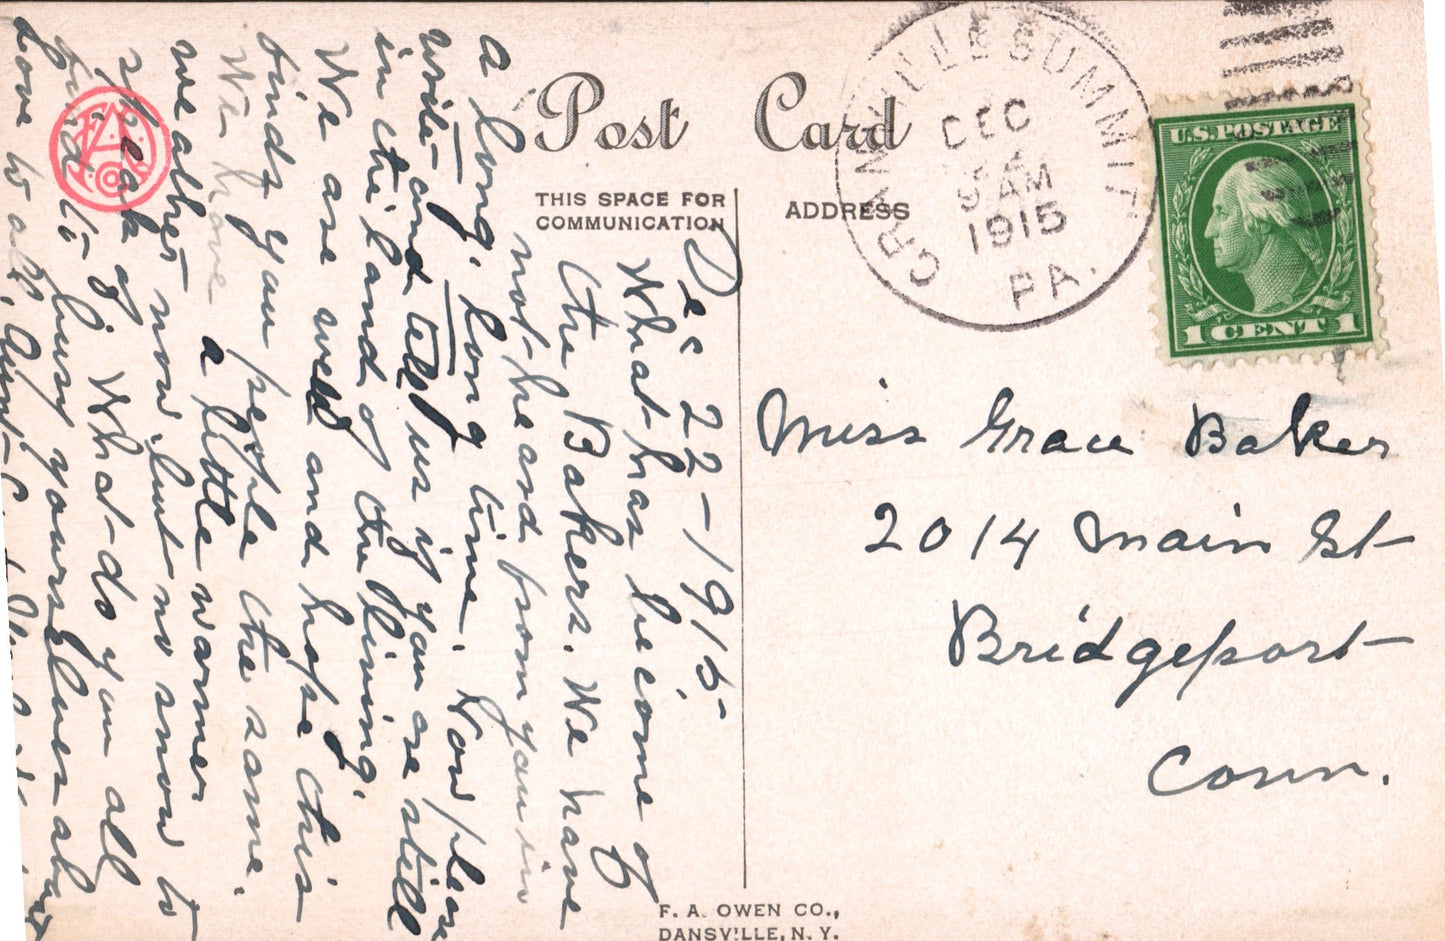 Post Card
THIS SPACE FOR
COMMUNICATION
ADDRESS
GRANVILLE SUMMIT
PA.
DEC
AM
1915
U.S. POSTAGE
1 CENT 1
Miss Grace Baker
2014 Main St
Bridgeport
Conn.
Dec 22-1915
What has become of
the Bakers. We have
not heard from you in
a long, long time. Now please
write- and tell us if you are still
in the land of the living.
We are well and hope this
finds you people the same.
We have a little warmer
weather now but no snow to
speak of. What do you all
find to busy yourselves about
Love to all. Aunt
F. A. OWEN CO.,
DANSVILLE, N. Y.